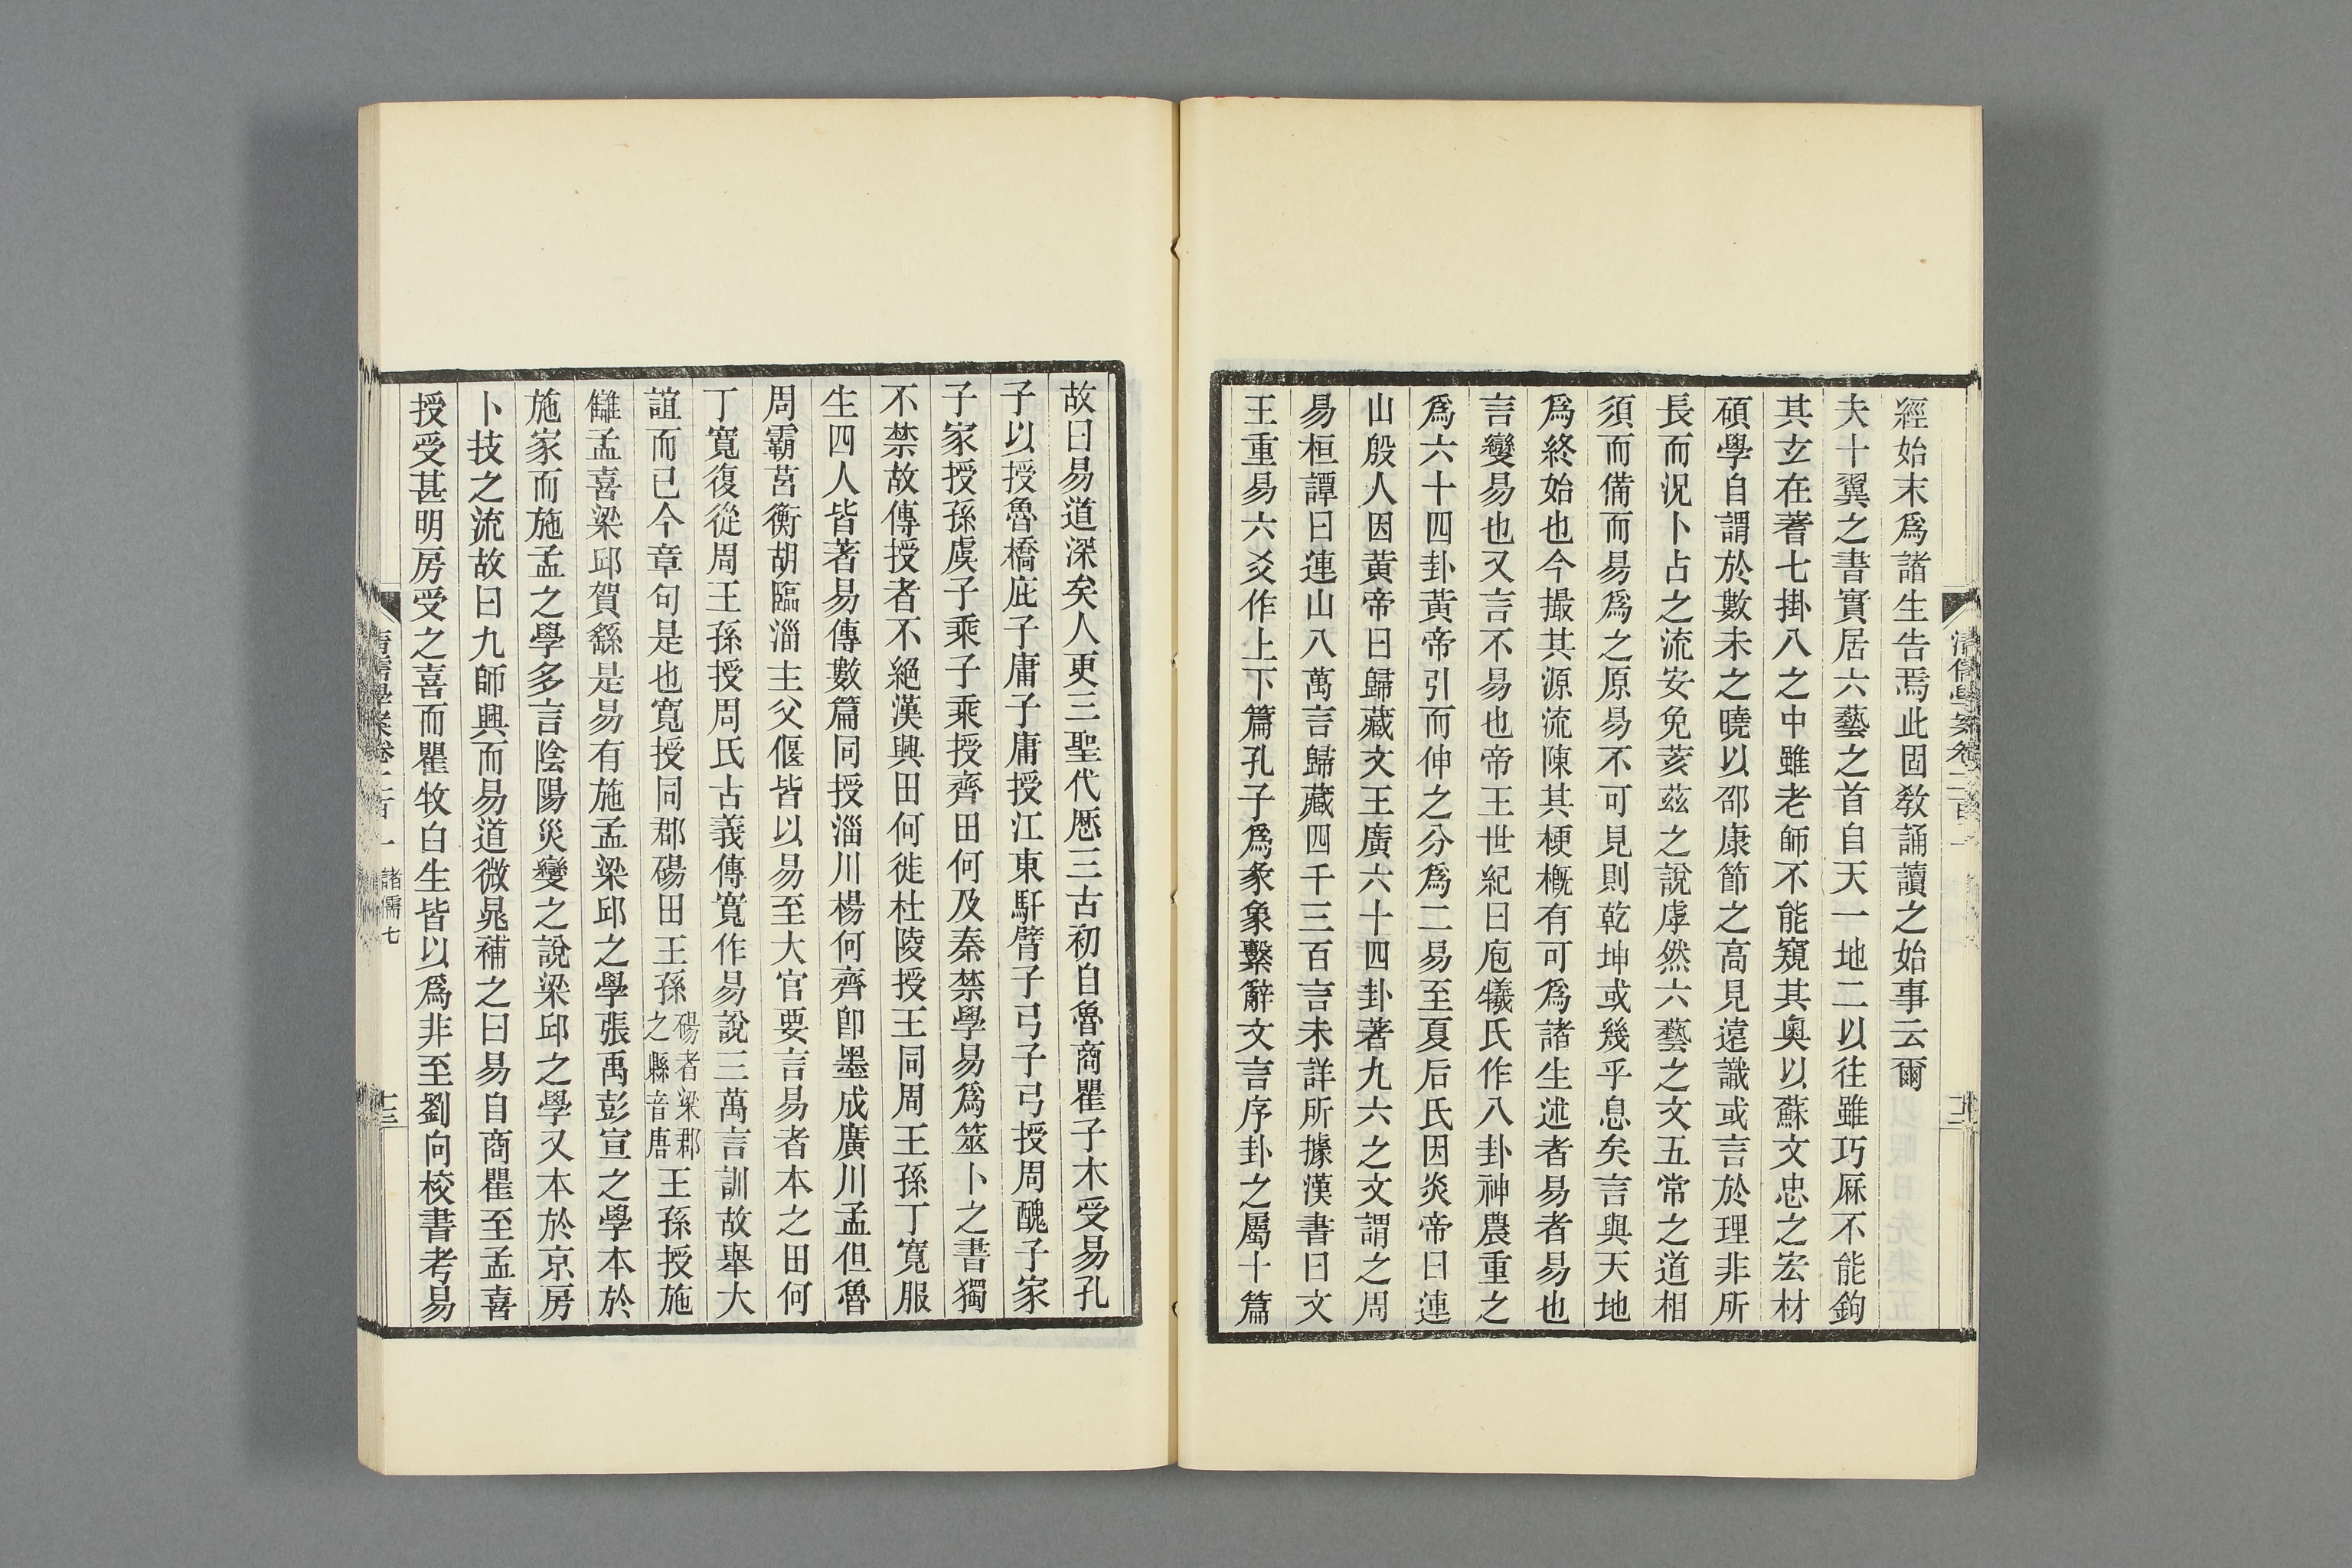 經始末爲諸生告焉此固敎誦讀之始事云爾
夫十翼之書實居六藝之首自天一地二以往雖巧厤不能鉤
其玄在蓍七掛八之中雖老師不能窺其奧以蘇文忠之宏材
碩學自謂於數未之曉以邵康節之高見遠識或言於理非所
長而況卜占之流安免荄茲之說虖然六藝之文五常之道相
須而備而易爲之原易不可見則乾坤或幾乎息矣言與天地
爲終始也今撮其源流陳其梗槪有可爲諸生述者易者易也
言變易也又言不易也帝王世紀曰庖犧氏作八卦神農重之
爲六十四卦黃帝引而伸之分爲二易至夏后氏因炎帝曰連
山殷人因黃帝曰歸藏文王廣六十四卦著九六之文謂之周
易桓譚曰連山八萬言歸藏四千三百言未詳所據漢書曰文
王重易六爻作上下篇孔子爲彖象繫辭文言序卦之屬十篇
故曰易道深矣人更三聖代厯三古初自魯商瞿子木受易孔
子以授魯橋庇子庸子庸授江東馯臂子弓子弓授周醜子家
子家授孫虞子乘子乘授齊田何及秦禁學易爲筮卜之書獨
不禁故傳授者不絕漢興田何徙杜陵授王同周王孫丁寬服
生四人皆著易傳數篇同授淄川楊何齊卽墨成廣川孟但魯
周霸莒衡胡臨淄主父偃皆以易至大官要言易者本之田何
丁寬復從周王孫授周氏古義傳寬作易說三萬言訓故舉大
誼而已今章句是也寬授同郡碭田王孫碭者梁郡之縣音唐王孫授施
讎孟喜梁邱賀繇是易有施孟梁邱之學張禹彭宣之學本於
施家而施孟之學多言陰陽災變之說梁邱之學又本於京房
卜技之流故曰九師興而易道微晁補之曰易自商瞿至孟喜
授受甚明房受之喜而瞿牧白生皆以爲非至劉向校書考易
清儒學案卷二百一 諸儒七
十三